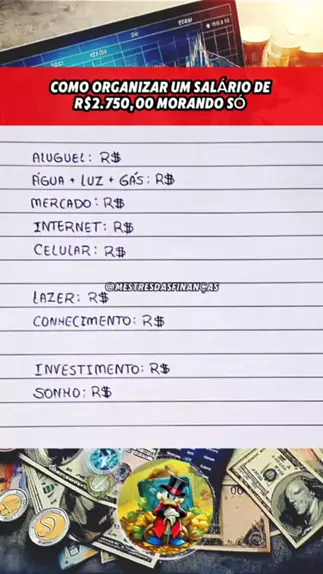 COMO ORGANIZAR UM SALÁRIO DE
R$2.750,00 MORANDO SÓ
ALUGUEL: R$
ÁGUA + LUZ + GÁS: R$
MERCADO: R$
INTERNET: R$
CELULAR: R$
@MESTRESDASFINANÇAS
LAZER: R$
CONHECIMENTO: R$
INVESTIMENTO: R$
SONHO: R$